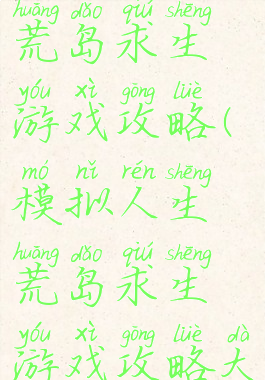 huāng dǎo qiú shēng
荒岛求生
yóu xì gōng lüè
游戏攻略(
mó nǐ rén shēng
模拟人生
huāng dǎo qiú shēng
荒岛求生
yóu xì gōng lüè dà
游戏攻略大